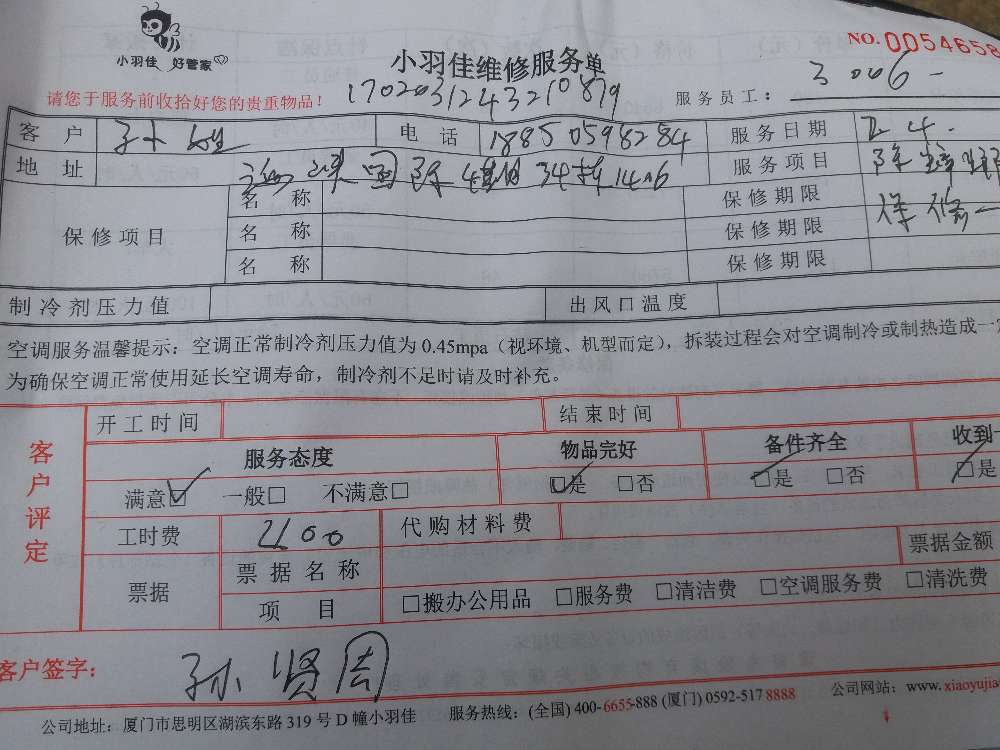 小羽佳 好管家
NO.0054658
小羽佳维修服务单
请您于服务前收拾好您的贵重物品!
1702031243210879
服务员工: 3006
客户 电话 18850598284 服务日期 24.
地址 34 1406 服务项目
保修项目
名称 保修期限 保修一
名称 保修期限
名称 保修期限
制冷剂压力值 出风口温度
空调服务温馨提示:空调正常制冷剂压力值为0.45mpa(视环境、机型而定),拆装过程会对空调制冷或制热造成一
为确保空调正常使用延长空调寿命,制冷剂不足时请及时补充。
客户评定
开工时间 结束时间
服务态度 物品完好 备件齐全 收到一
满意☑ 一般□ 不满意□ ☑是 □否 ☑是 □否 ☑是
工时费 2100 代购材料费
票据 票据名称 票据金额
项目 □搬办公用品 □服务费 □清洁费 □空调服务费 □清洗费
客户签字: 孙贤周
公司地址:厦门市思明区湖滨东路319号D幢小羽佳 服务热线:(全国) 400-6655-888 (厦门) 0592-5178888 公司网站:www.xiaoyujia